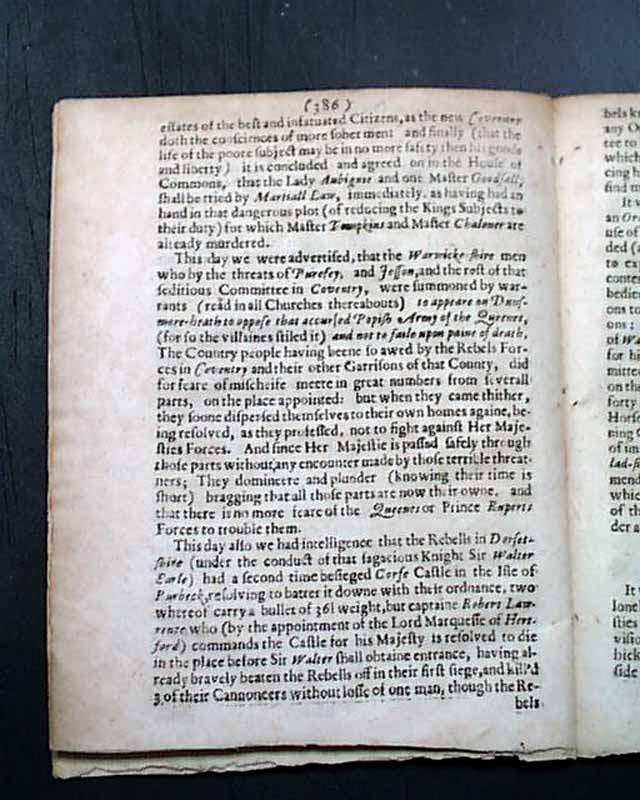 (386)
estates of the best and infatuated Citizens, as the new Covenant
doth the consciences of more sober men: and finally (that the
life of the poore subject may be in no more safety then his goods
and liberty) it is concluded and agreed on in the House of
Commons, that the Lady Aubigney and one Master Goodsall,
shall be tried by Martiall Law, immediately, as having had an
hand in that dangerous plot (of reducing the Kings Subjects to
their duty) for which Master Tompkins and Master Chaloner are
already murdered.
This day we were advertised, that the Warwicke-shire men
who by the threats of Purefey, and Jesson, and the rest of that
seditious Committee in Coventry, were summoned by war-
rants (read in all Churches thereabouts) to appeare on Duns-
more-heath to oppose that accursed Popish Army of the Queenes,
(for so the villaines stiled it) and not to faile upon paine of death,
The Country people having beene so awed by the Rebels For-
ces in Coventry and their other Garrisons of that County, did
for feare of mischeife meete in great numbers from severall
parts, on the place appointed: but when they came thither,
they soone dispersed themselves to their own homes againe, be-
ing resolved, as they professed, not to fight against Her Maje-
sties Forces. And since Her Majestie is passed safely through
those parts without any encounter made by those terrible threat-
ners; They domineere and plunder (knowing their time is
short) bragging that all those parts are now their owne, and
that there is no more feare of the Queenes or Prince Ruperts
Forces to trouble them.
This day also we had intelligence that the Rebells in Dorset-
shire (under the conduct of that sagacious Knight Sir Walter
Earle) had a second time besieged Corfe Castle in the Isle of
Purbeck, resolving to batter it downe with their ordnance, two
whereof carry a bullet of 36l weight, but captaine Robert Law-
rence who (by the appointment of the Lord Marquesse of Hert-
ford) commands the Castle for his Majesty is resolved to die
in the place before Sir Walter shall obtaine entrance, having al-
ready bravely beaten the Rebells off in their first siege, and kill'd
3 of their Cannoneers without losse of one man, though the Re-
bels
any O
tee to
which
cing h
find m
It w
an Or
use of
ded (a
to ex
contes
bedien
ons to
ons;
of Wa
for hi
mitted
on the
forty
Horse
ning
of im
lad-si
mend
which
of th
der a
It
lone
sties
visio
bick
side